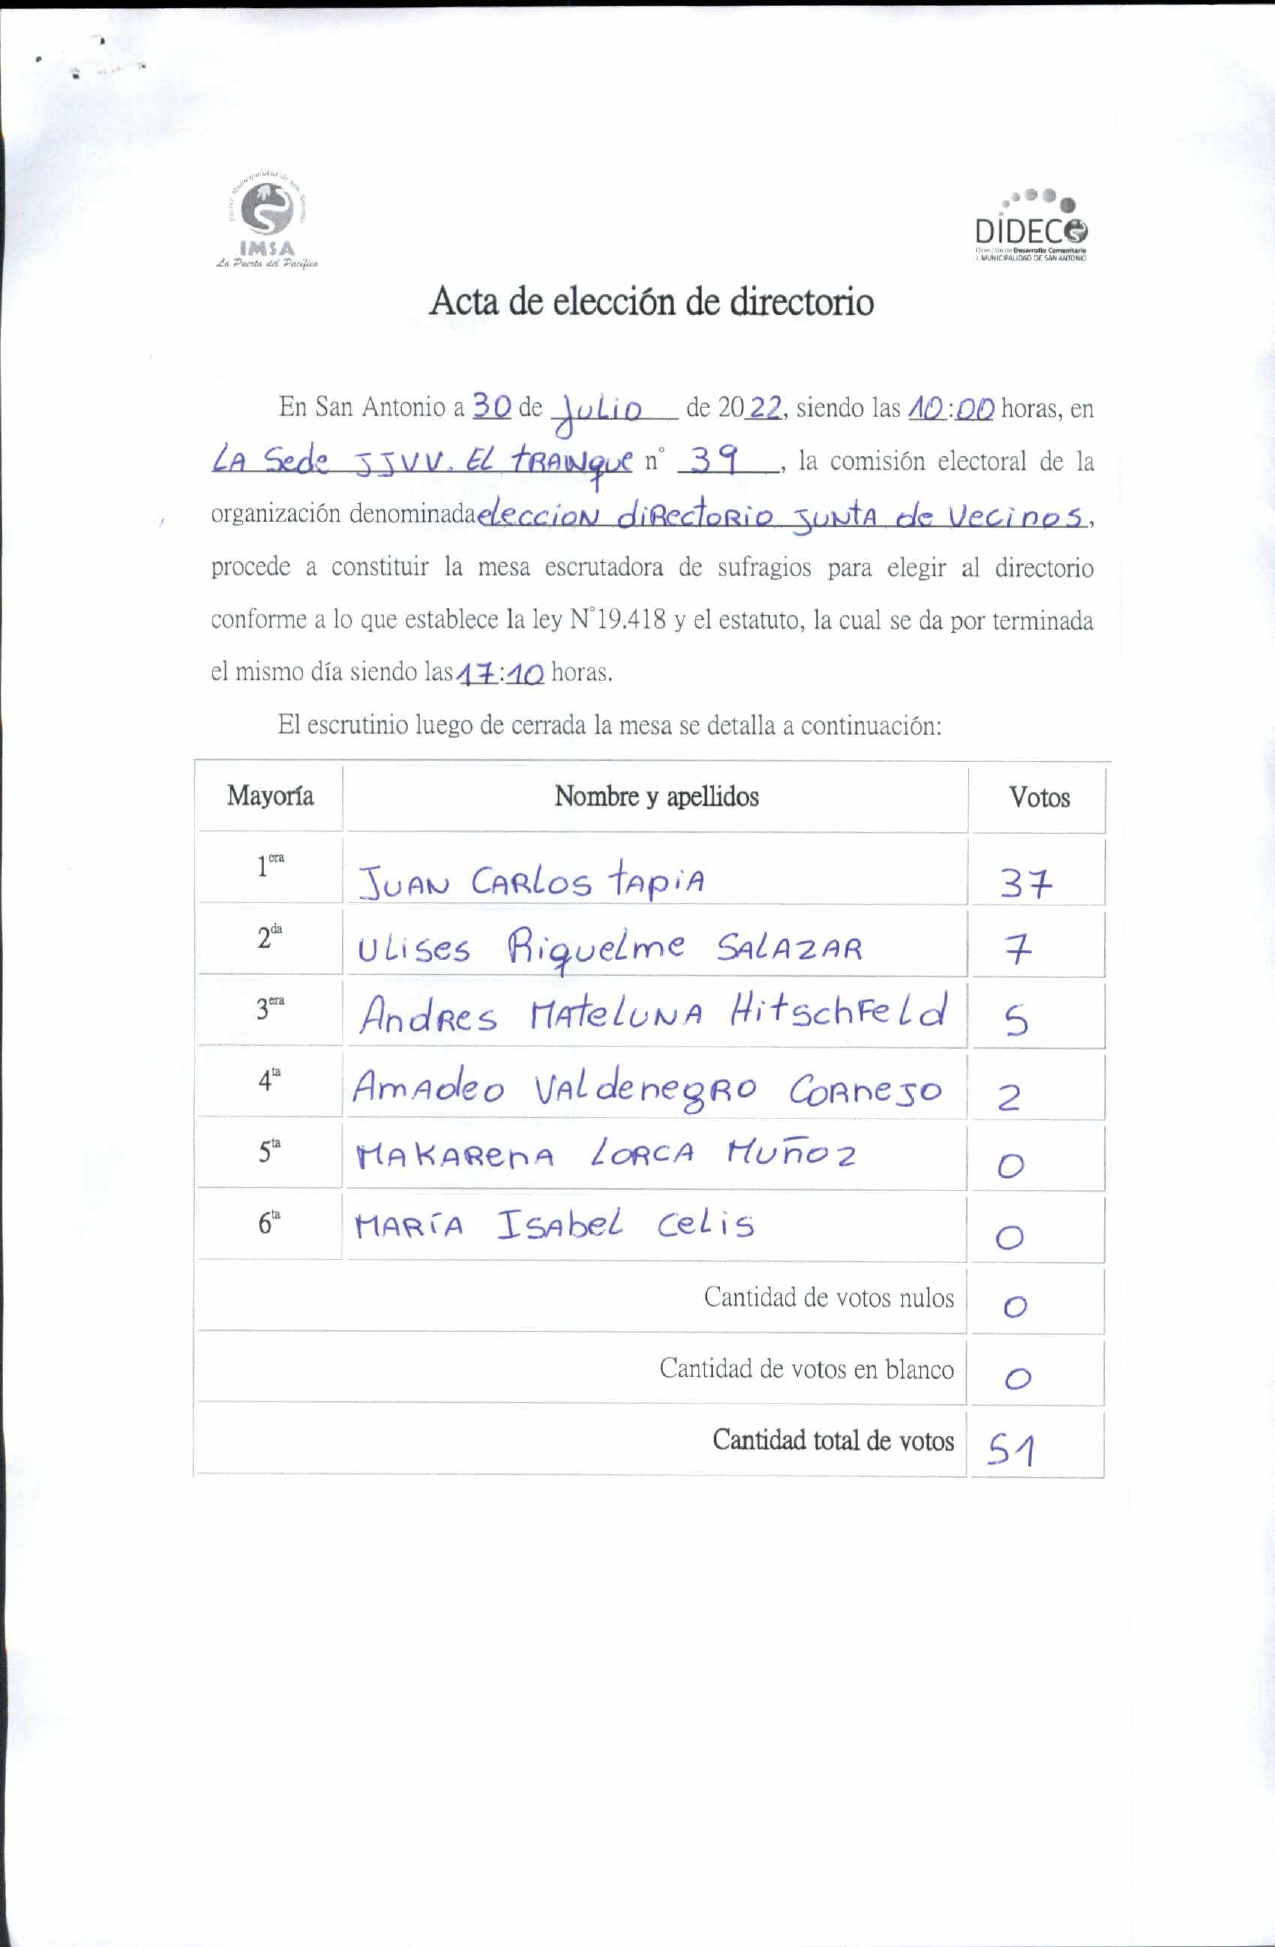 IMSA
La Puerta del Pacífico
DIDECO
Desarrollo Comunitario
I. MUNICIPALIDAD DE SAN ANTONIO
Acta de elección de directorio
En San Antonio a 30 de Julio de 2022, siendo las 10:00 horas, en
LA Sede JJVV. EL tRANque n° 39, la comisión electoral de la
organización denominada eleccioN diRectoRio JuNtA de Vecinos,
procede a constituir la mesa escrutadora de sufragios para elegir al directorio
conforme a lo que establece la ley N°19.418 y el estatuto, la cual se da por terminada
el mismo día siendo las 17:10 horas.
El escrutinio luego de cerrada la mesa se detalla a continuación:
Mayoría Nombre y apellidos Votos
1era JUAN CARLOS tApiA 37
2da ULises Riquelme SALAZAR 7
3era AndRes MAteLUNA HitschFeLd 5
4ta AmAdeo VALdenegRO CoRneJo 2
5ta MAKARenA LORCA Muñoz 0
6ta MARíA ISAbeL CeLis 0
Cantidad de votos nulos 0
Cantidad de votos en blanco 0
Cantidad total de votos 51